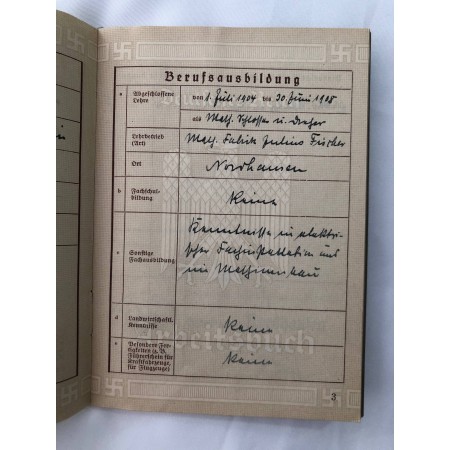 Berufsausbildung
a Abgeschlossene Lehre von 1. Juli 1904 bis 30. Juni 1908
als Masch. Schlosser u. Dreher
Lehrbetrieb (Art) Masch. Fabrik Julius Fischer
Ort Nordhausen
b Fachschul-
bildung Keine
c Sonstige
Fachausbildung Kenntnisse in elektri-
scher Fachinstallation und
im Maschinenbau
d Landwirtschaftl.
Kenntnisse Keine
e Besondere Fer-
tigkeiten (z. B.
Führerschein für
Kraftfahrzeuge,
für Flugzeuge) Keine
Arbeitsbuch
3